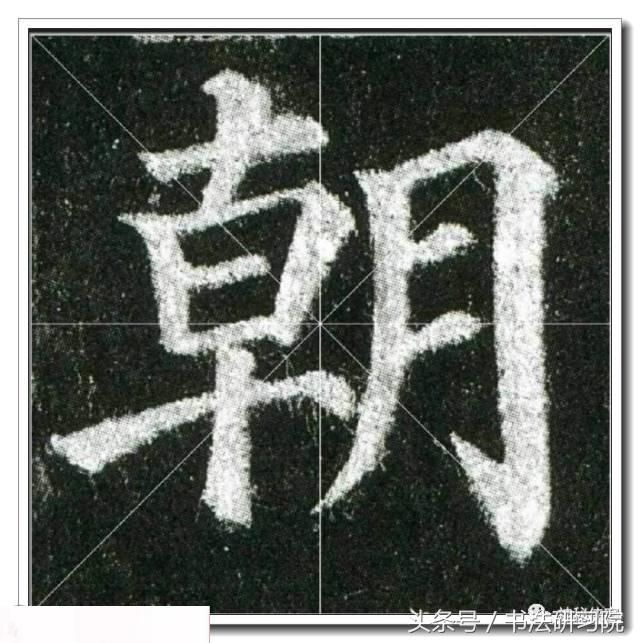 朝
头条号 / 书法研习院